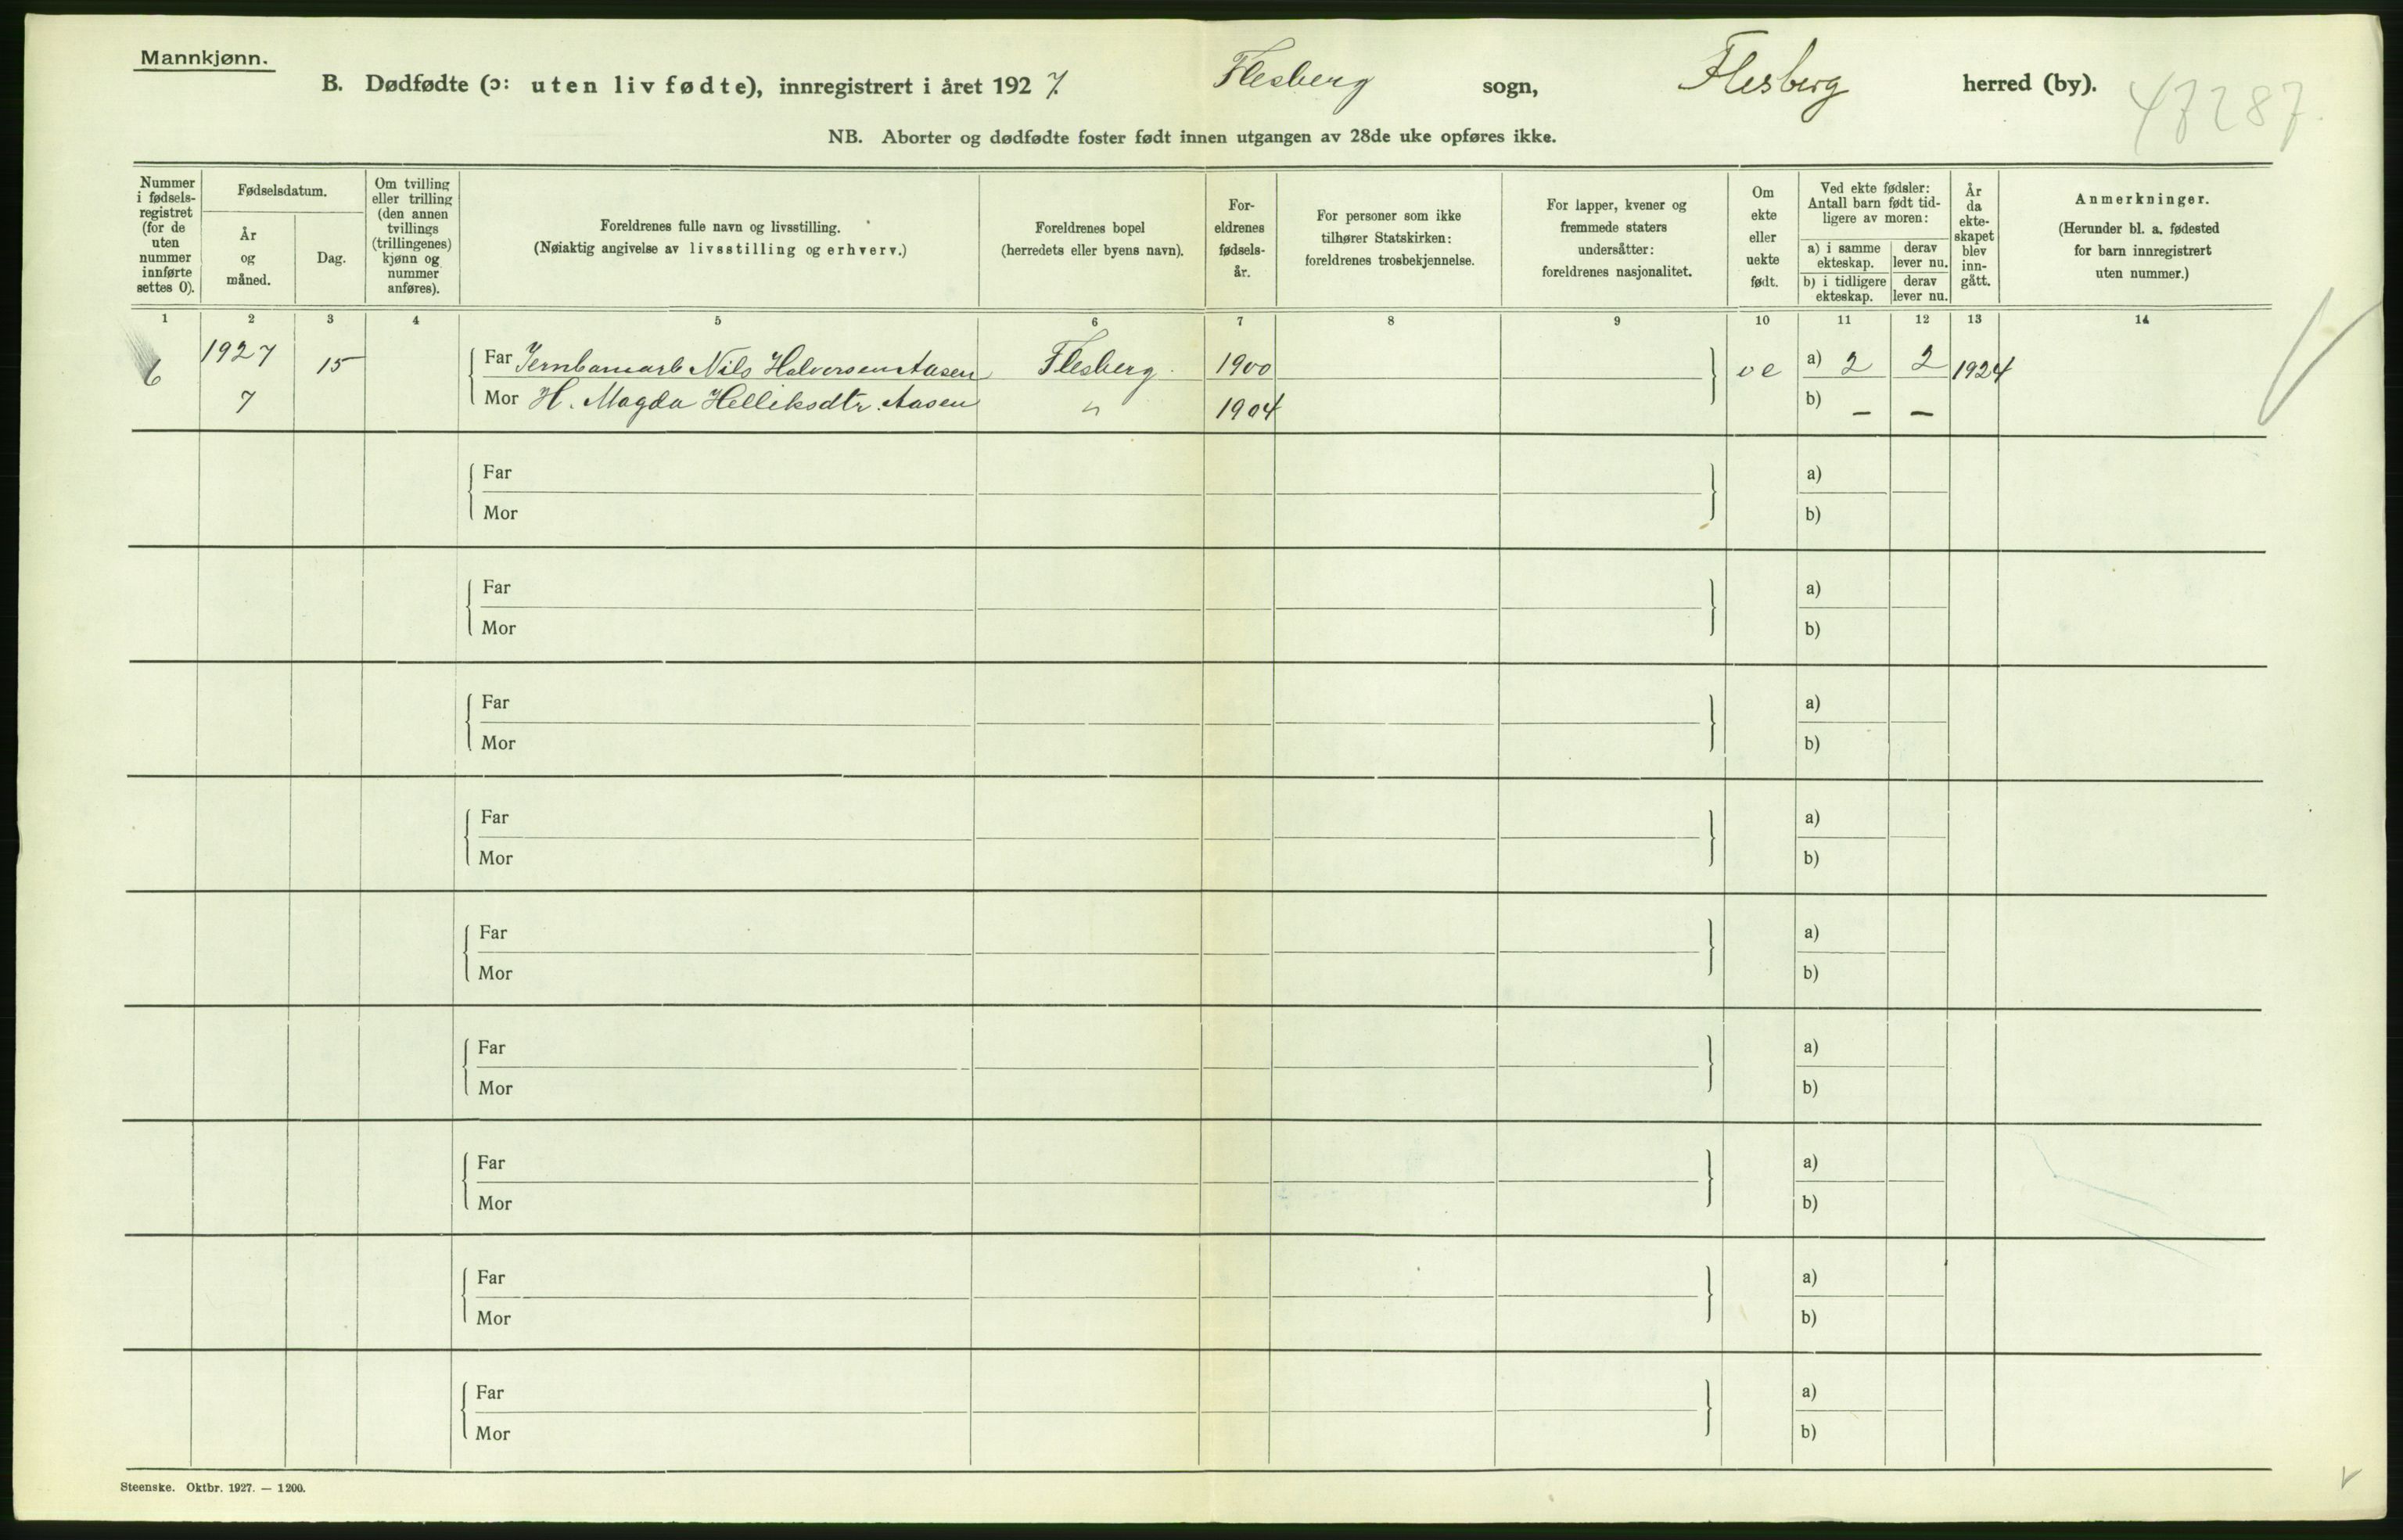 Mannkjønn.
B. Dødfødte (ɔ: uten liv fødte), innregistrert i året 1927. Flesberg sogn, Flesberg herred (by).
47287.
NB. Aborter og dødfødte foster født innen utgangen av 28de uke opføres ikke.
Nummer i fødsels-registret (for de uten nummer innførte settes 0).
Fødselsdatum.
År og måned.
Dag.
Om tvilling eller trilling (den annen tvillings (trillingenes) kjønn og nummer anføres).
Foreldrenes fulle navn og livsstilling.
(Nøiaktig angivelse av livsstilling og erhverv.)
Foreldrenes bopel
(herredets eller byens navn).
For-eldrenes fødsels-år.
For personer som ikke tilhører Statskirken: foreldrenes trosbekjennelse.
For lapper, kvener og fremmede staters undersåtter: foreldrenes nasjonalitet.
Om ekte eller uekte født.
Ved ekte fødsler: Antall barn født tid-ligere av moren:
a) i samme ekteskap.
derav lever nu.
b) i tidligere ekteskap.
derav lever nu.
År da ekte-skapet blev inn-gått.
Anmerkninger.
(Herunder bl. a. fødested for barn innregistrert uten nummer.)
1 2 3 4 5 6 7 8 9 10 11 12 13 14
6 1927 15 Far Jernbanearb Nils Halvorsen Aasen Flesberg. 1900 a) 2 2 1924
7 Mor H. Magda Helliksdtr. Aasen " 1904 b) – –
Far a)
Mor b)
Far a)
Mor b)
Far a)
Mor b)
Far a)
Mor b)
Far a)
Mor b)
Far a)
Mor b)
Far a)
Mor b)
Far a)
Mor b)
Far a)
Mor b)
Steenske. Oktbr. 1927. — 1200.